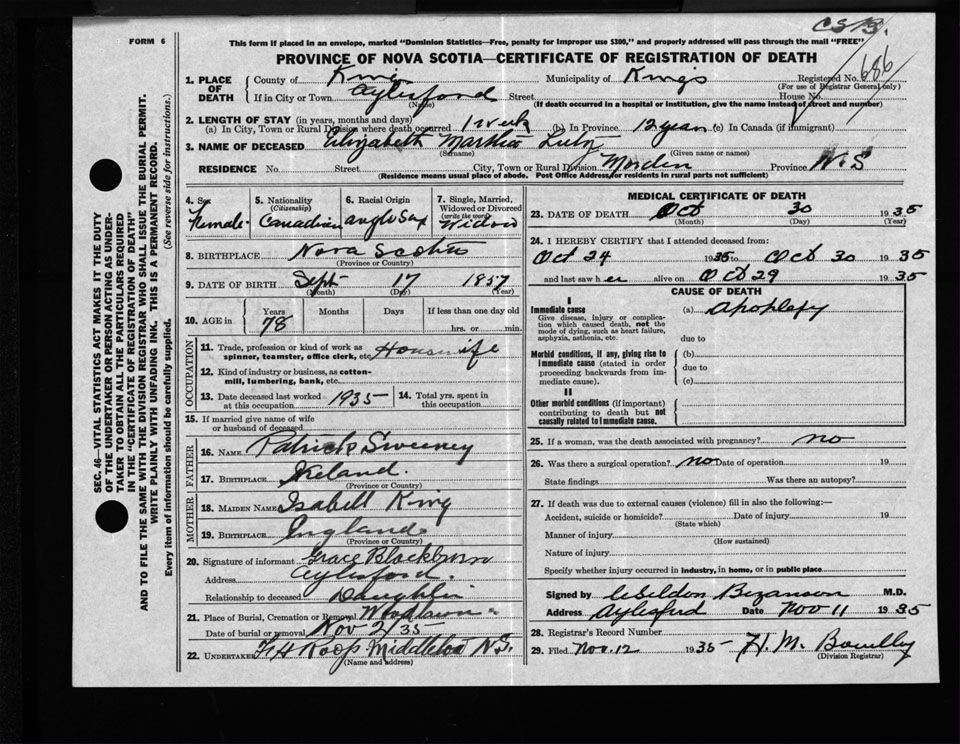 C.S.B.
FORM 6
This form if placed in an envelope, marked "Dominion Statistics—Free, penalty for improper use $300," and properly addressed will pass through the mail "FREE"
PROVINCE OF NOVA SCOTIA—CERTIFICATE OF REGISTRATION OF DEATH
1. PLACE OF DEATH
County of Kings Municipality of Kings Registered No. 686
(For use of Registrar General only)
If in City or Town Aylesford Street House No.
(Name) (If death occurred in a hospital or institution, give the name instead of street and number)
2. LENGTH OF STAY (in years, months and days)
(a) In City, Town or Rural Division where death occurred 1 week (b) In Province 12 years (c) In Canada (if immigrant)
3. NAME OF DECEASED Elizabeth Martha Lutz
(Surname) (Given name or names)
RESIDENCE No. Street City, Town or Rural Division Morden Province N.S
(Residence means usual place of abode. Post Office Address for residents in rural parts not sufficient)
4. Sex
Female
5. Nationality
(Citizenship)
Canadian
6. Racial Origin
anglo Sax
7. Single, Married, Widowed or Divorced
(write the word)
Widow
8. BIRTHPLACE Nova Scotia
(Province or Country)
9. DATE OF BIRTH Sept 17 1857
(Month) (Day) (Year)
10. AGE in Years Months Days If less than one day old
78 hrs. or min.
OCCUPATION
11. Trade, profession or kind of work as spinner, teamster, office clerk, etc. Housewife
12. Kind of industry or business, as cotton-mill, lumbering, bank, etc.
13. Date deceased last worked at this occupation 1935
14. Total yrs. spent in this occupation
15. If married give name of wife or husband of deceased
FATHER
16. NAME Patrick Sweeney
17. BIRTHPLACE Ireland.
(Province or Country)
MOTHER
18. MAIDEN NAME Isabell King
19. BIRTHPLACE England
(Province or Country)
20. Signature of informant Grace Blackburn
Address Aylesford.
Relationship to deceased Daughter
21. Place of Burial, Cremation or Removal Woodlawn
Date of burial or removal Nov 2/35
22. UNDERTAKER F H Roop Middleton N.S.
(Name and address)
MEDICAL CERTIFICATE OF DEATH
23. DATE OF DEATH Oct 30 1935
(Month) (Day)
24. I HEREBY CERTIFY that I attended deceased from:
Oct 24 1935 to Oct 30 1935
and last saw her alive on Oct 29 1935
CAUSE OF DEATH
I
Immediate cause
Give disease, injury or complication which caused death, not the mode of dying, such as heart failure, asphyxia, asthenia, etc.
(a) Apoplexy
due to
Morbid conditions, if any, giving rise to immediate cause (stated in order proceeding backwards from immediate cause).
(b)
due to
(c)
II
Other morbid conditions (if important) contributing to death but not causally related to immediate cause.
25. If a woman, was the death associated with pregnancy? no
26. Was there a surgical operation? no Date of operation 19
State findings Was there an autopsy?
27. If death was due to external causes (violence) fill in also the following:—
Accident, suicide or homicide? Date of injury 19
(State which)
Manner of injury
(How sustained)
Nature of injury
Specify whether injury occurred in industry, in home, or in public place
Signed by Weldon Bezanson M.D.
Address Aylesford Date Nov 11 1935
28. Registrar's Record Number
29. Filed Nov. 12 1935 H. M.
(Division Registrar)
SEC. 46—VITAL STATISTICS ACT MAKES IT THE DUTY
OF THE UNDERTAKER OR PERSON ACTING AS UNDER-
TAKER TO OBTAIN ALL THE PARTICULARS REQUIRED
IN THE "CERTIFICATE OF REGISTRATION OF DEATH"
AND TO FILE THE SAME WITH THE DIVISION REGISTRAR WHO SHALL ISSUE THE BURIAL PERMIT.
WRITE PLAINLY WITH UNFADING INK. THIS IS A PERMANENT RECORD.
Every item of information should be carefully supplied. (See reverse side for instructions.)